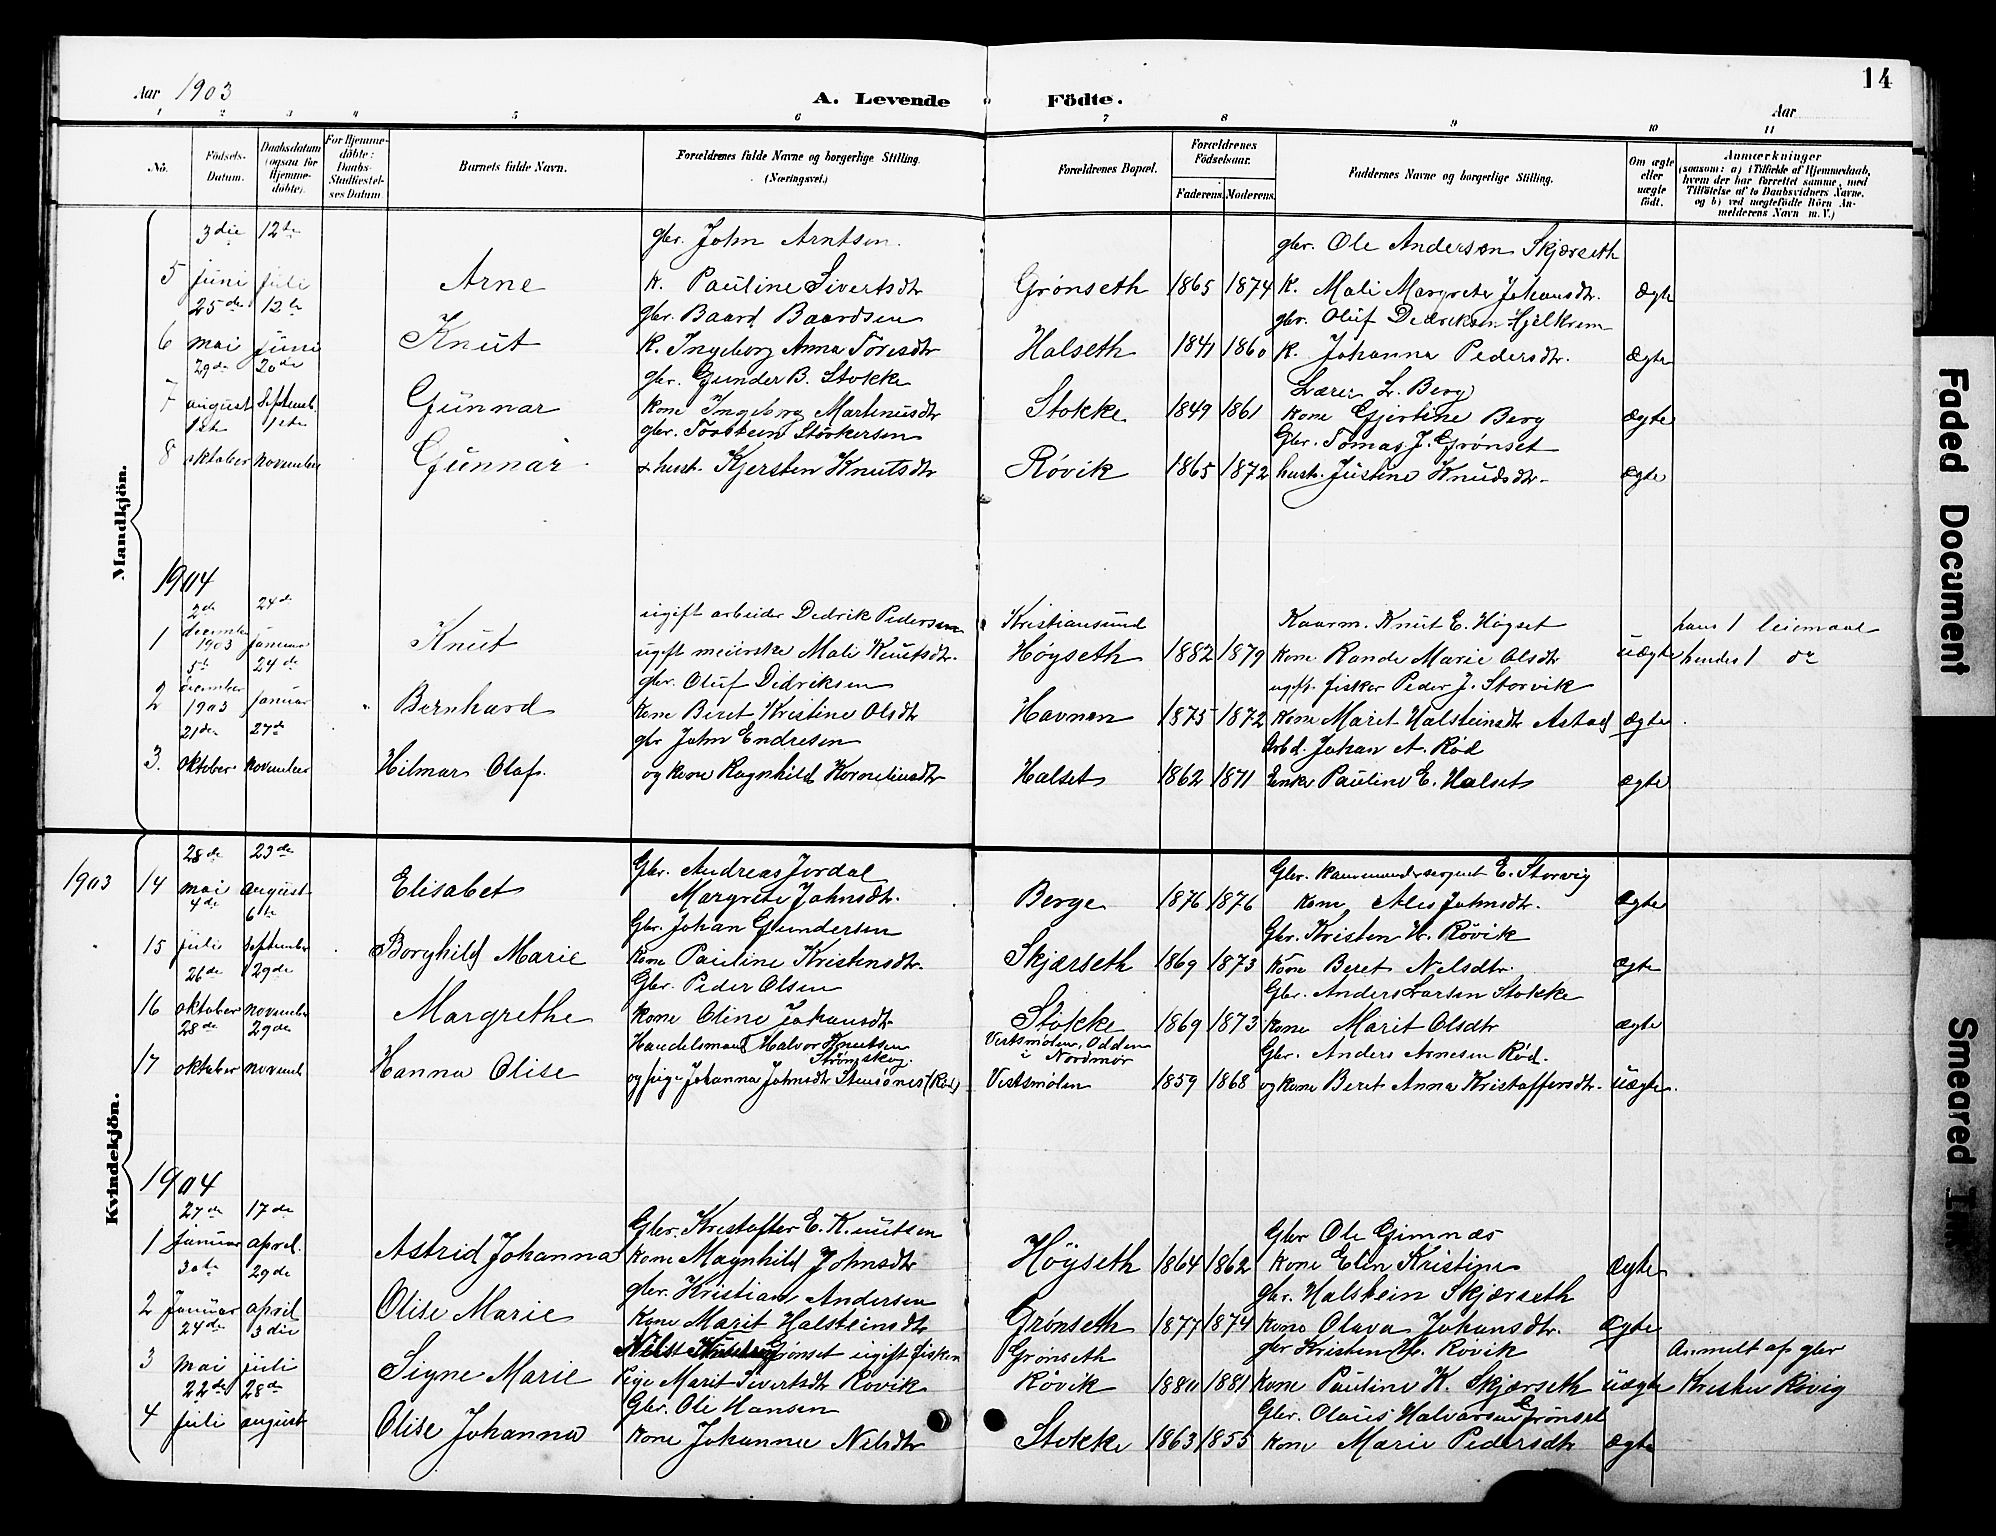 14
Aar 1903
A. Levende Födte.
Aar
1 2 3 4 5 6 7 8 9 10 11
No. Födsels-Datum. Daabsdatum (ogsaa for Hjemme-döbte). For Hjemme-döbte: Daabs-Stadfæstel-ses Datum. Barnets fulde Navn. Forældrenes fulde Navne og borgerlige Stilling. (Næringsvei.) Forældrenes Bopæl. Forældrenes Födselsaar. Faderens. Moderens. Faddernes Navne og borgerlige Stilling. Om ægte eller uægte födt. Anmærkninger (saasom: a) i Tilfælde af Hjemmedaab, hvem der har forrettet samme, med Tilföielse af to Daabsvidners Navne, og b) ved uægtefödte Börn An-melderens Navn m. V.)
Mandkjön.
3die 12te gbr. John Arntsen gbr. Ole Andersen Skjærseth
5 juni juli Arne k. Pauline Sivertsdtr Grønseth 1865 1874 k. Mali Margrete Johansdtr. ægte
25de 12te gbr. Baard Baardsen gbr. Oluf Dedriksen Hjelkrem
6 mai juni Knut k. Ingeborg Anna Toresdtr Halseth 1841 1860 k. Johanna Pedersdtr. ægte
29de 20de gbr. Gunder B. Stokke Lærer L. Berg
7 august septemb. Gunnar kone Ingeborg Martinusdtr Stokke 1849 1861 kone Gjertine Berg ægte
1ste 1ste gbr. Torstein Størkersen Gbr. Tomas J. Grønset
8 oktober november Gunnar & hust. Kjersten Knutsdtr Røvik 1865 1872 hust. Justine Knudsdtr. ægte
1904
2de 24de ugift arbeider Dedrik Pedersen Kristiansund Kaarm. Knut E. Høgset hans 1 leiemaal
1 december 1903 januar Knut ugift meierske Mali Knutsdtr. Høyseth 1882 1879 kone Rande Marie Olsdtr uægte hendes 1 do
5te 24de gbr. Oluf Didriksen ugift fisker Peder J. Storvik
2 december 1903 januar Bernhard kone Beret Kristine Olsdtr Havnen 1875 1872 kone Marit Halsteinsdtr Astad ægte
21de 27de gbr John Endresen Arbd. Johan A. Rød
3. oktober november Hilmar Olaf. og kone Ragnhild Korneliusdtr Halset 1862 1871 Enke Pauline E. Halset ægte
Kvindekjön.
28de 23de Gbr. Andreas Jordal Gbr. kammandersergent E. Storvig
1903 14 mai august Elisabet Margrete Johnsdtr. Berge 1876 1876 kone Ales Johnsdtr. ægte
4de 6te Gbr. Johan Gundersen Gbr. Kristen H. Røvik
15 juli september Borghild Marie kone Pauline Kristensdtr. Skjærseth 1869 1873 kone Beret Nilsdtr. ægte
26de 29de Gbr. Peder Olsen Gbr. Anders Larsen Stokke
16 oktober november Margrethe kone Oline Johansdtr Stokke 1869 1873 kone Marit Olsdtr ægte
28de 29de Handelsmand Halvor Knutsen Strømskog. Vestsmølen, Odden i Nordmør Gbr. Anders Arnesen Rød.
17 oktober novemb Hanna Olise og pige Johanna Johnsdtr Stensønes (Rød) Vestsmølen 1859 1868 og kone Beret Anna Kristoffersdtr. uægte.
1904
27de 17de Gbr. Kristoffer E. Knutsen Gbr Ole Gimnæs
1 januar april. Astrid Johanna kone Magnhild Johnsdtr Høyseth 1864 1862 kone Elen Kristine ægte
30te 29de gbr. Kristian Andersen gbr. Halstein Skjærseth
2 Januar april Olise Marie kone Marit Halsteinsdtr Grønseth 1877 1874 kone Olava Johansdtr. ægte
24de 3die Nils Grønset ugift fisker Grønseth gbr Kristen H. Røvik Anmelt af gbr
3 mai juli Signe Marie Pige Marit Sivertsdtr Røvik Røvik 1880 1881 kone Pauline K. Skjærseth uægte Kristen Røvig
22de 28de Gbr. Ole Hansen Gbr. Olaus Halvarsen Grønset
4 juli august Olise Johanna kone Johanna Nilsdtr Stokke 1863 1855 kone Marie Pedersdtr ægte
Faded Document
Smeared Ink